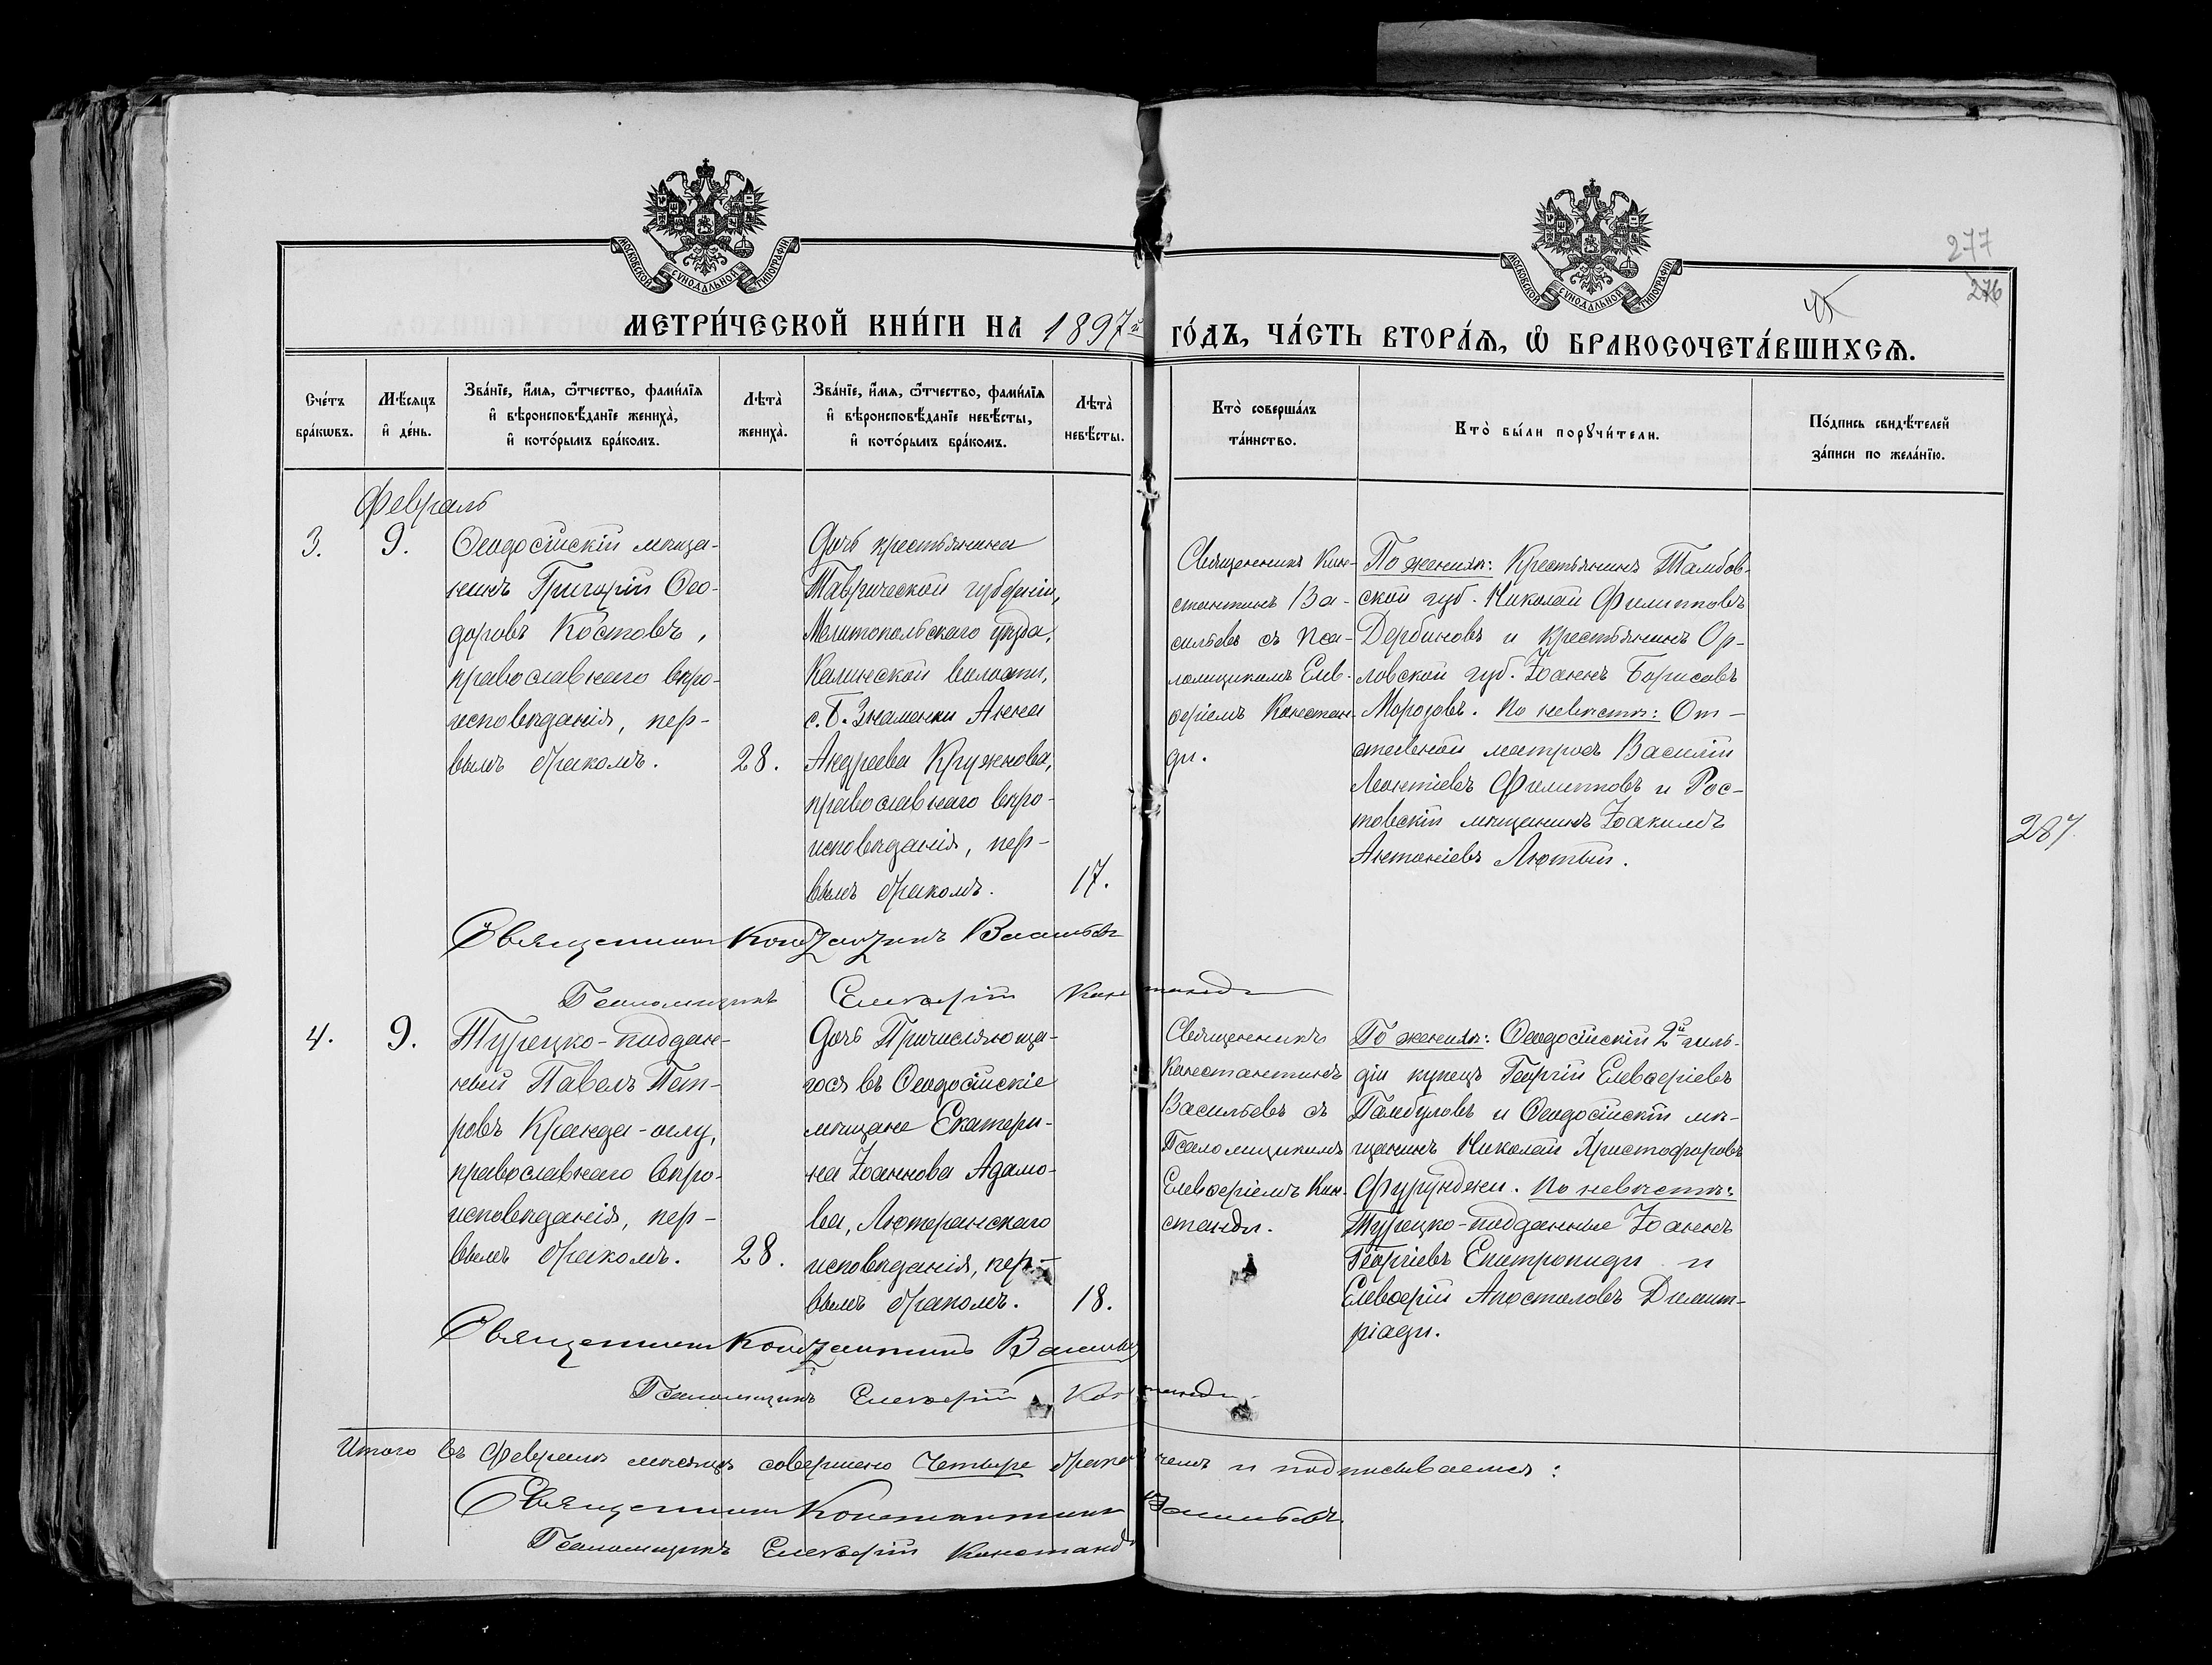 МОСКОВСКОЙ СУНОДАЛЬНОЙ ТИПОГРАФІИ
МОСКОВСКОЙ СУНОДАЛЬНОЙ ТИПОГРАФІИ
277
276
МЕТРИ́ЧЕСКОЙ КНИ́ГИ НА 1897й ГО́ДЪ, ЧА́СТЬ ВТОРА́Ѧ, Ѽ БРАКОСОЧЕТА́ВШИХСѦ.
Сче́тъ
бра́кѡвъ.
Мѣ́сяцъ
и҆ де́нь.
Зва́нїе, и҆́мѧ, ѻ҆́тчество, фами́лїѧ
и҆ вѣроисповѣ́данїе жениха̀,
и҆ кото́рымъ бра́комъ.
Лѣта̀
жениха̀.
Зва́нїе, и҆́мѧ, ѻ҆́тчество, фами́лїѧ
и҆ вѣроисповѣ́данїе невѣ́сты,
и҆ кото́рымъ бра́комъ.
Лѣта̀
невѣ́сты.
Кто̀ соверша́лъ
та́инство.
Кто̀ бы́ли порꙋчи́тели.
По́дпись свидѣ́телей
за́писи по жела́нїю.
Февраль
3.
9.
Ѳеодосійскій мѣща-
нинъ Григорій Ѳео-
доровъ Костовъ,
православнаго вѣро-
исповѣданія, пер-
вымъ бракомъ.
28.
Дочь крестьянина
Таврической губерніи,
Мелитопольскаго уѣзда,
волости,
с. Б. Знаменки Анна
Андреева Кружкова,
православнаго вѣро-
исповѣданія, пер-
вымъ бракомъ.
17.
Священникъ Кон-
стантинъ Ва-
сильевъ съ Пса-
ломщикомъ Елев-
ѳеріемъ Констан-
ди.
По женихѣ: Крестьянинъ Тамбов-
ской губ. Николай Филипповъ
Дербиновъ и крестьянинъ Ор-
ловской губ. Іоаннъ Борисовъ
Морозовъ. По невѣстѣ: От-
ставной матросъ Василій
Леонтіевъ Филипповъ и Рос-
товскій мѣщанинъ Іоакимъ
Антоніевъ Лютый.
287.
Священникъ Константинъ Васильевъ
Псаломщикъ Елевѳерій Констанди
4.
9.
Турецко-поддан-
ный Павелъ Пет-
ровъ Кранда-оглу,
православнаго вѣро-
исповѣданія, пер-
вымъ бракомъ.
28.
Дочь Причисляюща-
гося въ Ѳеодосійскіе
мѣщане Екатери-
на Іоаннова Адамо-
ва, Лютеранскаго
исповѣданія, пер-
вымъ бракомъ.
18.
Священникъ
Константинъ
Васильевъ съ
Псаломщикомъ
Елевѳеріемъ Кон-
станди.
По женихѣ: Ѳеодосійскій 2й гиль-
діи купецъ Георгій Елевѳеріевъ
Памбуловъ и Ѳеодосійскій мѣ-
щанинъ Николай Христофоровъ
Фурунджи. По невѣстѣ:
Турецко-подданные Іоаннъ
Георгіевъ Епитропиди и
Елевѳерій Апостоловъ Димит-
ріади.
Священникъ Константинъ Васильевъ
Псаломщикъ Елевѳерій Констанди
Итого въ Февралѣ мѣсяцѣ совершено Четыре брака въ чемъ и подписываемся:
Священникъ Константинъ Васильевъ.
Псаломщикъ Елевѳерій Констанди